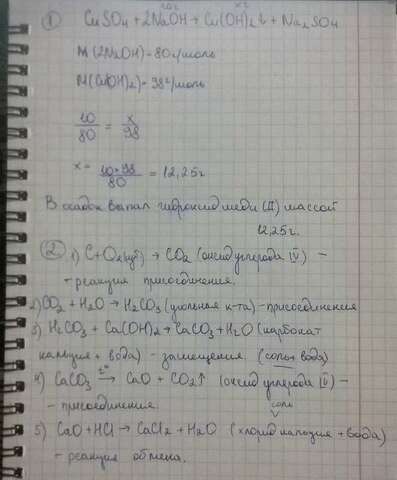 10г хг
1) CuSO4 + 2NaOH → Cu(OH)2↓ + Na2SO4
M(2NaOH)=80г/моль
M(Cu(OH)2)=98г/моль
10/80 = x/98
x = 10*98/80 = 12,25г
В осадок выпал гидроксид меди (II) массой
12,25г.
2) 1) C+O2(изб) → CO2 (оксид углерода IV) –
- реакция присоединения.
2) CO2 + H2O → H2CO3 (угольная к-та) - присоединения
3) H2CO3 + Ca(OH)2 → CaCO3 + H2O (карбонат
кальция + вода) - замещения (соль + вода)
4) CaCO3 t°→ CaO + CO2↑ (оксид углерода IV) –
- присоединения.
соль
5) CaO + HCl → CaCl2 + H2O (хлорид кальция + вода)
- реакция обмена.